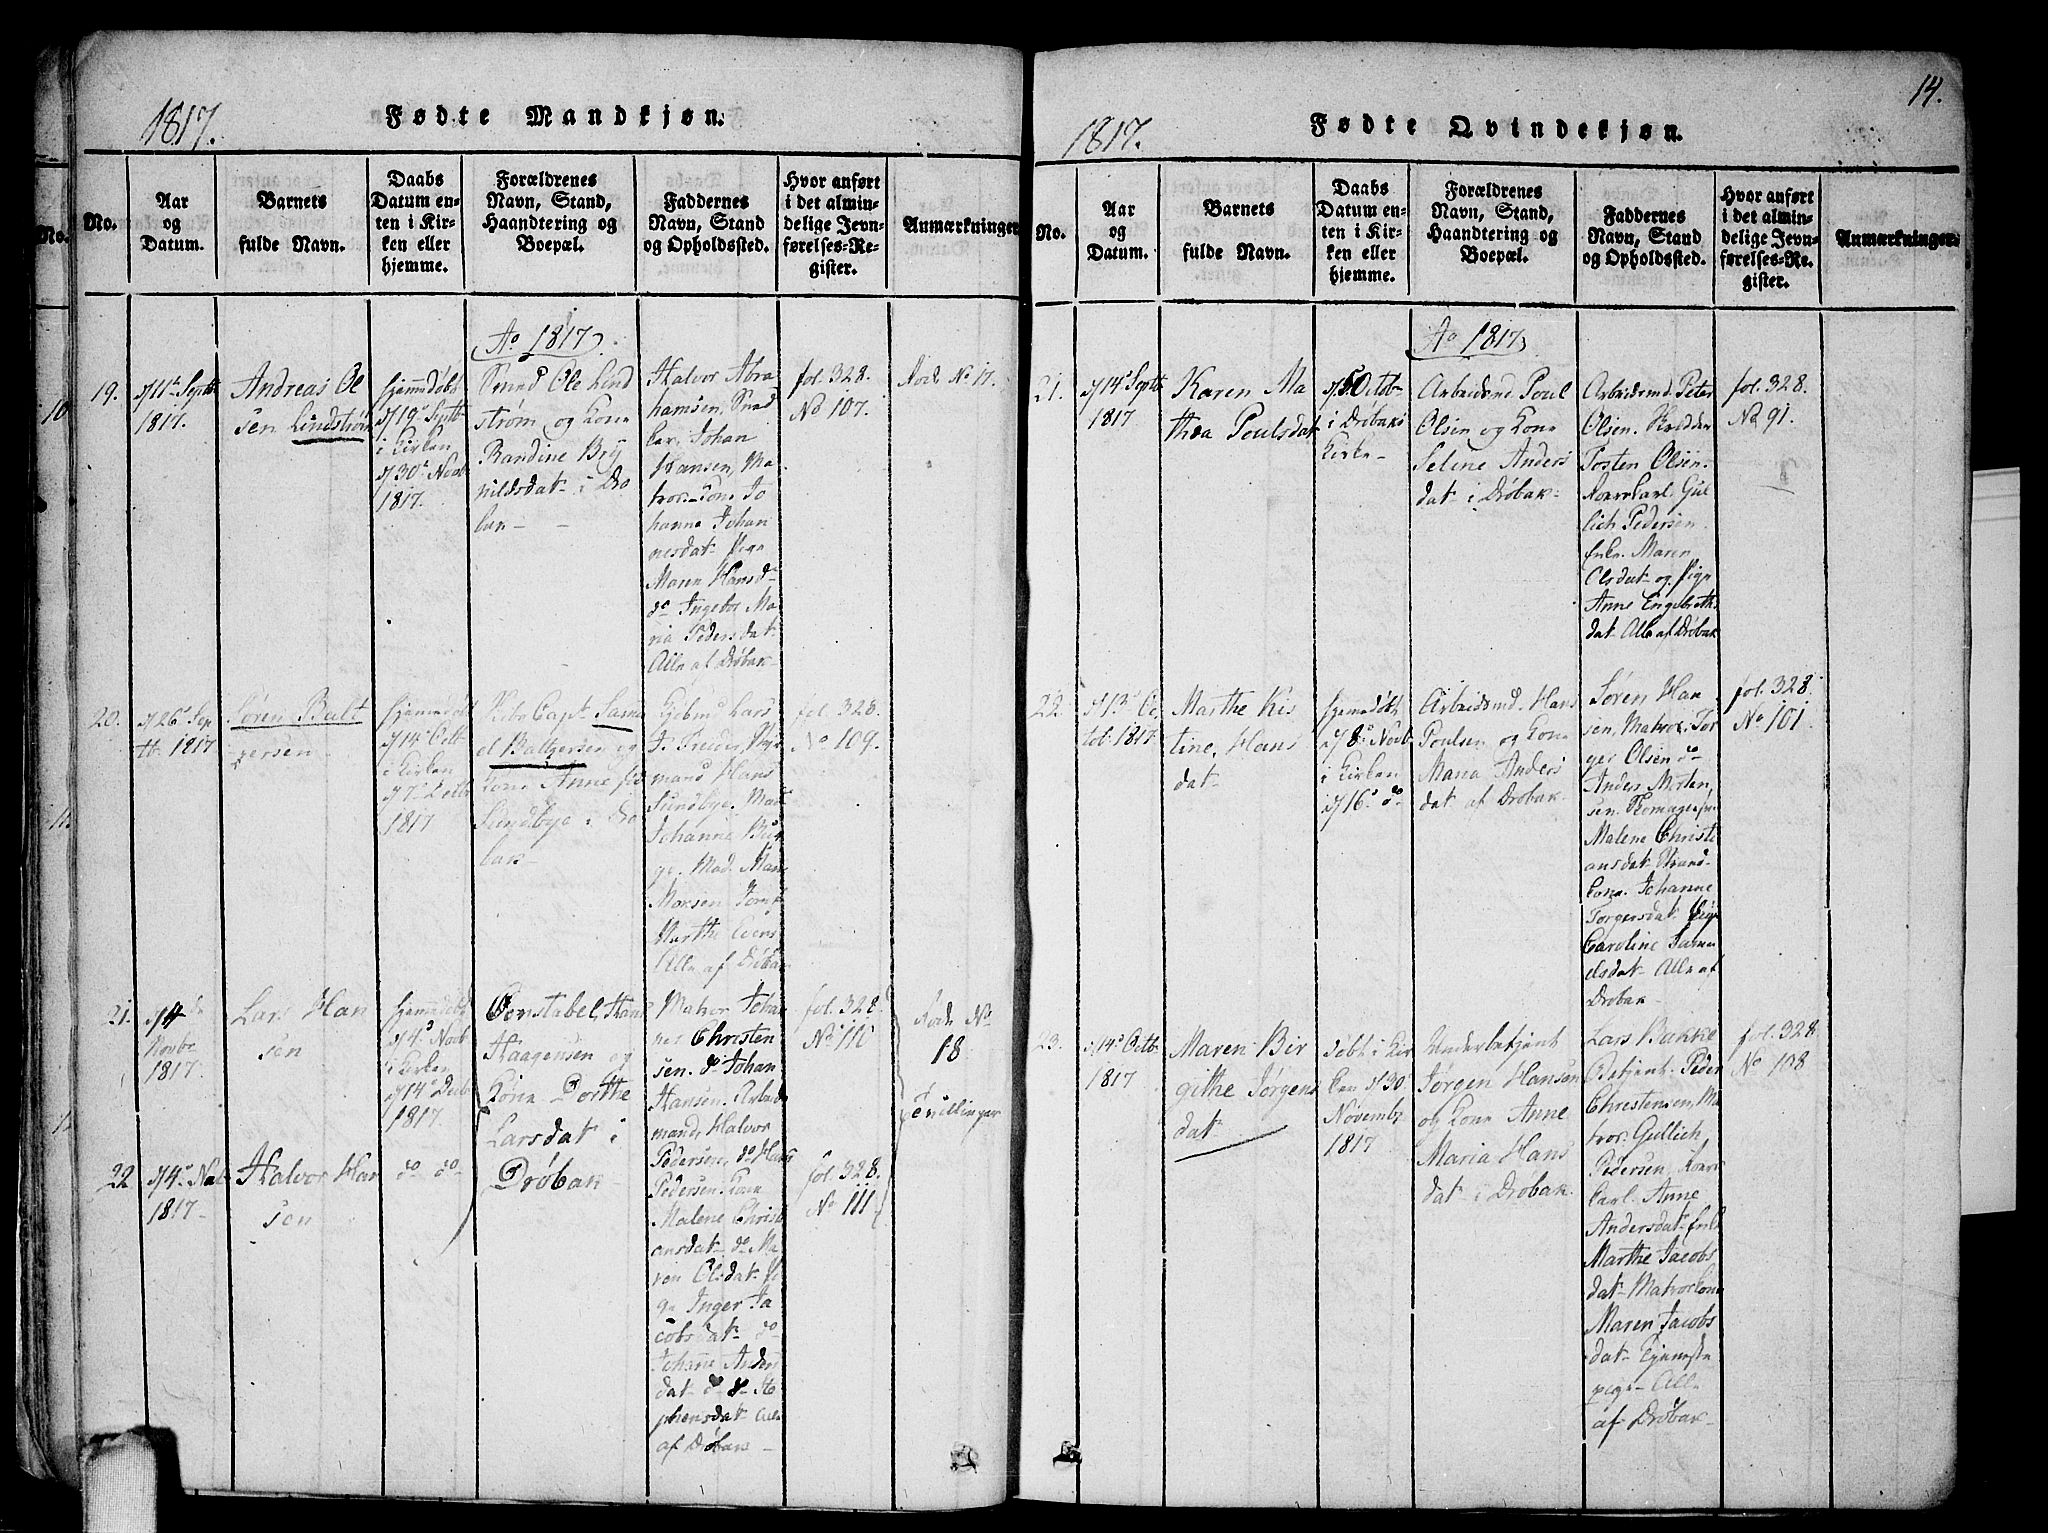 1817.
Fødte Mandkjøn.
No.
Aar
og
Datum.
Barnets
fulde Navn.
Daabs
Datum en-
ten i Kir-
ken eller
hjemme.
Forældrenes
Navn, Stand,
Haandtering og
Boepæl.
Faddernes
Navn, Stand
og Opholdssted.
Hvor anført
i det almin-
delige Jevn-
førelses-Re-
gister.
Anmærkninger
Ao 1817
19.
d 11te Septbr
1817.
Andreas Ol
sen Lindstrøm
hjemmedøbt
d 19de Septbr
i Kirken
d 30te Novbr
1817.
Ole Lind
strøm og Kone
Randine Bry
nildsdat i Drø
bak
Halvor Abra
hamsen,
Johan
Hansen, Ma
tros. Kone Jo
hanne Johan
nesdat Pige
Maren Hansd
do Ingebor Ma
ria Pedersdat
Alle af Drøbak
fol. 328.
No 107.
No 17.
20.
d 26de Sep
tbr 1817
Søren Balt
zersen
hjemmedøbt
d 14de Octb
i Kirken
d 7de
1817
Capt. Samu
el Baltzersen og
Kone Anne
Sundbye i Drø
bak
Lars
mand Hans
Sundbye. Mad.
Johanne
Mad.
Marthe
Alle af Drøbak
fol. 328.
No 109.
21.
d 4de
Novbr
1817.
Lars Han
sen
hjemmedøbt
d 4de Novb
i Kirken
d 14de Decb
1817.
Constabel, Hans
Haagensen og
Kone Dorthe
Larsdat i
Drøbak
Matros Johan
nes Christen
sen. do Johan
Hansen. Arbeids
mand, Halvor
Pedersen, do Hans
Pedersen. Kone
Malene Christi
ansdat do Ma
ren Olsdat Pi
ge Inger Ja
cobsdat do
Johanne Anders
dat do do Ste
phensdat Alle
af Drøbak
fol. 328.
No 110
No
18
Tvillinger
22
d 4de Nov
1817
Halvor Han
sen
do do
fol. 328.
No 111
14.
1817.
Fødte Qvindekjøn.
No.
Aar
og
Datum.
Barnets
fulde Navn.
Daabs
Datum en-
ten i Kir-
ken eller
hjemme.
Forældrenes
Navn, Stand,
Haandtering og
Boepæl.
Faddernes
Navn, Stand
og Opholdssted.
Hvor anført
i det almin-
delige Jevn-
førelses-Re-
gister.
Anmærkninger
Ao 1817
21.
d 14de Septb
1817
Karen Ma
thea Poulsdat
d 5 Octob
i Drøbaks
Kirke
Arbeidsmd. Poul
Olsen og Kone
Seline Anders
dat i Drøbak
Arbeidsmd. Peter
Olsen. Skrædder
Tosten Olsen.
Ungkarl. Gul
lich Pedersen
Enke. Maren
Olsdat og Pige
Anne Engebreths
dat Alle af Drøbak
fol. 328.
No 91.
22.
d 13de Oc
tob. 1817
Marthe Kis
tine, Hans
dat
hjemmedøbt
d 8de Novb
i Kirken
d 16de do
Arbeidsmd. Hans
Poulsen og Kone
Maria Anders
dat af Drøbak
Søren Han
sen, Matros. Tor
ger Olsen do
Anders Morten
sen.
Malene Christi
ansdat
Kone. Johanne
Torgersdat Pige
Caroline Samu
elsdat Alle af
Drøbak
fol. 328
No 101
23.
d 14de Octb.
1817
Maren Bir
githe Jørgens
dat
døbt i Kir
ken d 30
Novembr
1817
Underbetjent
Jørgen Hansen
og Kone Anne
Maria Hans
dat i Drøbak.
Lars Bakke
Betjent. Peder
Christensen, Ma
tros. Gullich
Pedersen, Ung
karl. Anne
Andersdat
Marthe Jacobs
dat Matroskone
Maren Jacobs
dat Tjeneste
pige Alle
af Drøbak
fol. 328
No 108